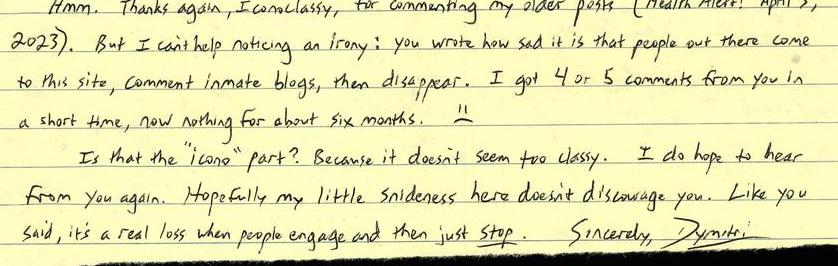 Hmm. Thanks again, Iconoclassy, for commenting my older posts (Health Alert! April 5,
2023). But I can't help noticing an irony: you wrote how sad it is that people out there come
to this site, comment inmate blogs, then disappear. I got 4 or 5 comments from you in
a short time, now nothing for about six months.
Is that the "icono" part? Because it doesn't seem too classy. I do hope to hear
from you again. Hopefully my little snideness here doesn't discourage you. Like you
said, it's a real loss when people engage and then just stop. Sincerely, Dymitri